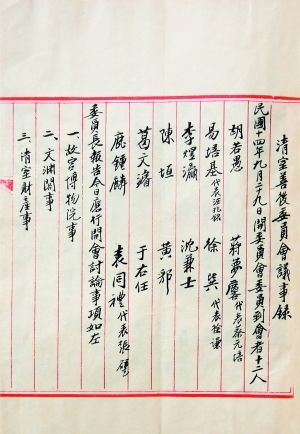 清室善後委員會議事录
民國十四年九月二十九日開委員會委員到會者十二人
胡若愚 蔣夢麐代表蔡元培
易培基代表汪兆銘 徐巽代表徐謙
李煜瀛 沈兼士
陳垣 黃郛
葛文濬 于右任
庶鍾麟 袁同禮代表張璧
委員長報告今日應行開會討論事項如左
一、故宮博物院事
二、文淵閣事
三、清室財產事